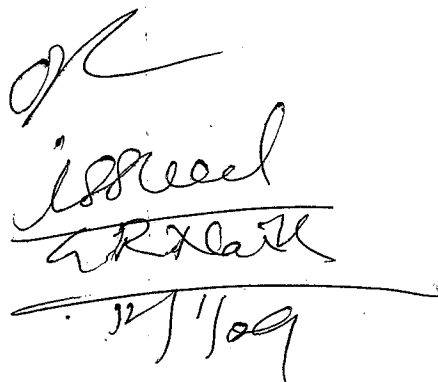 OK
issued
12/1/09